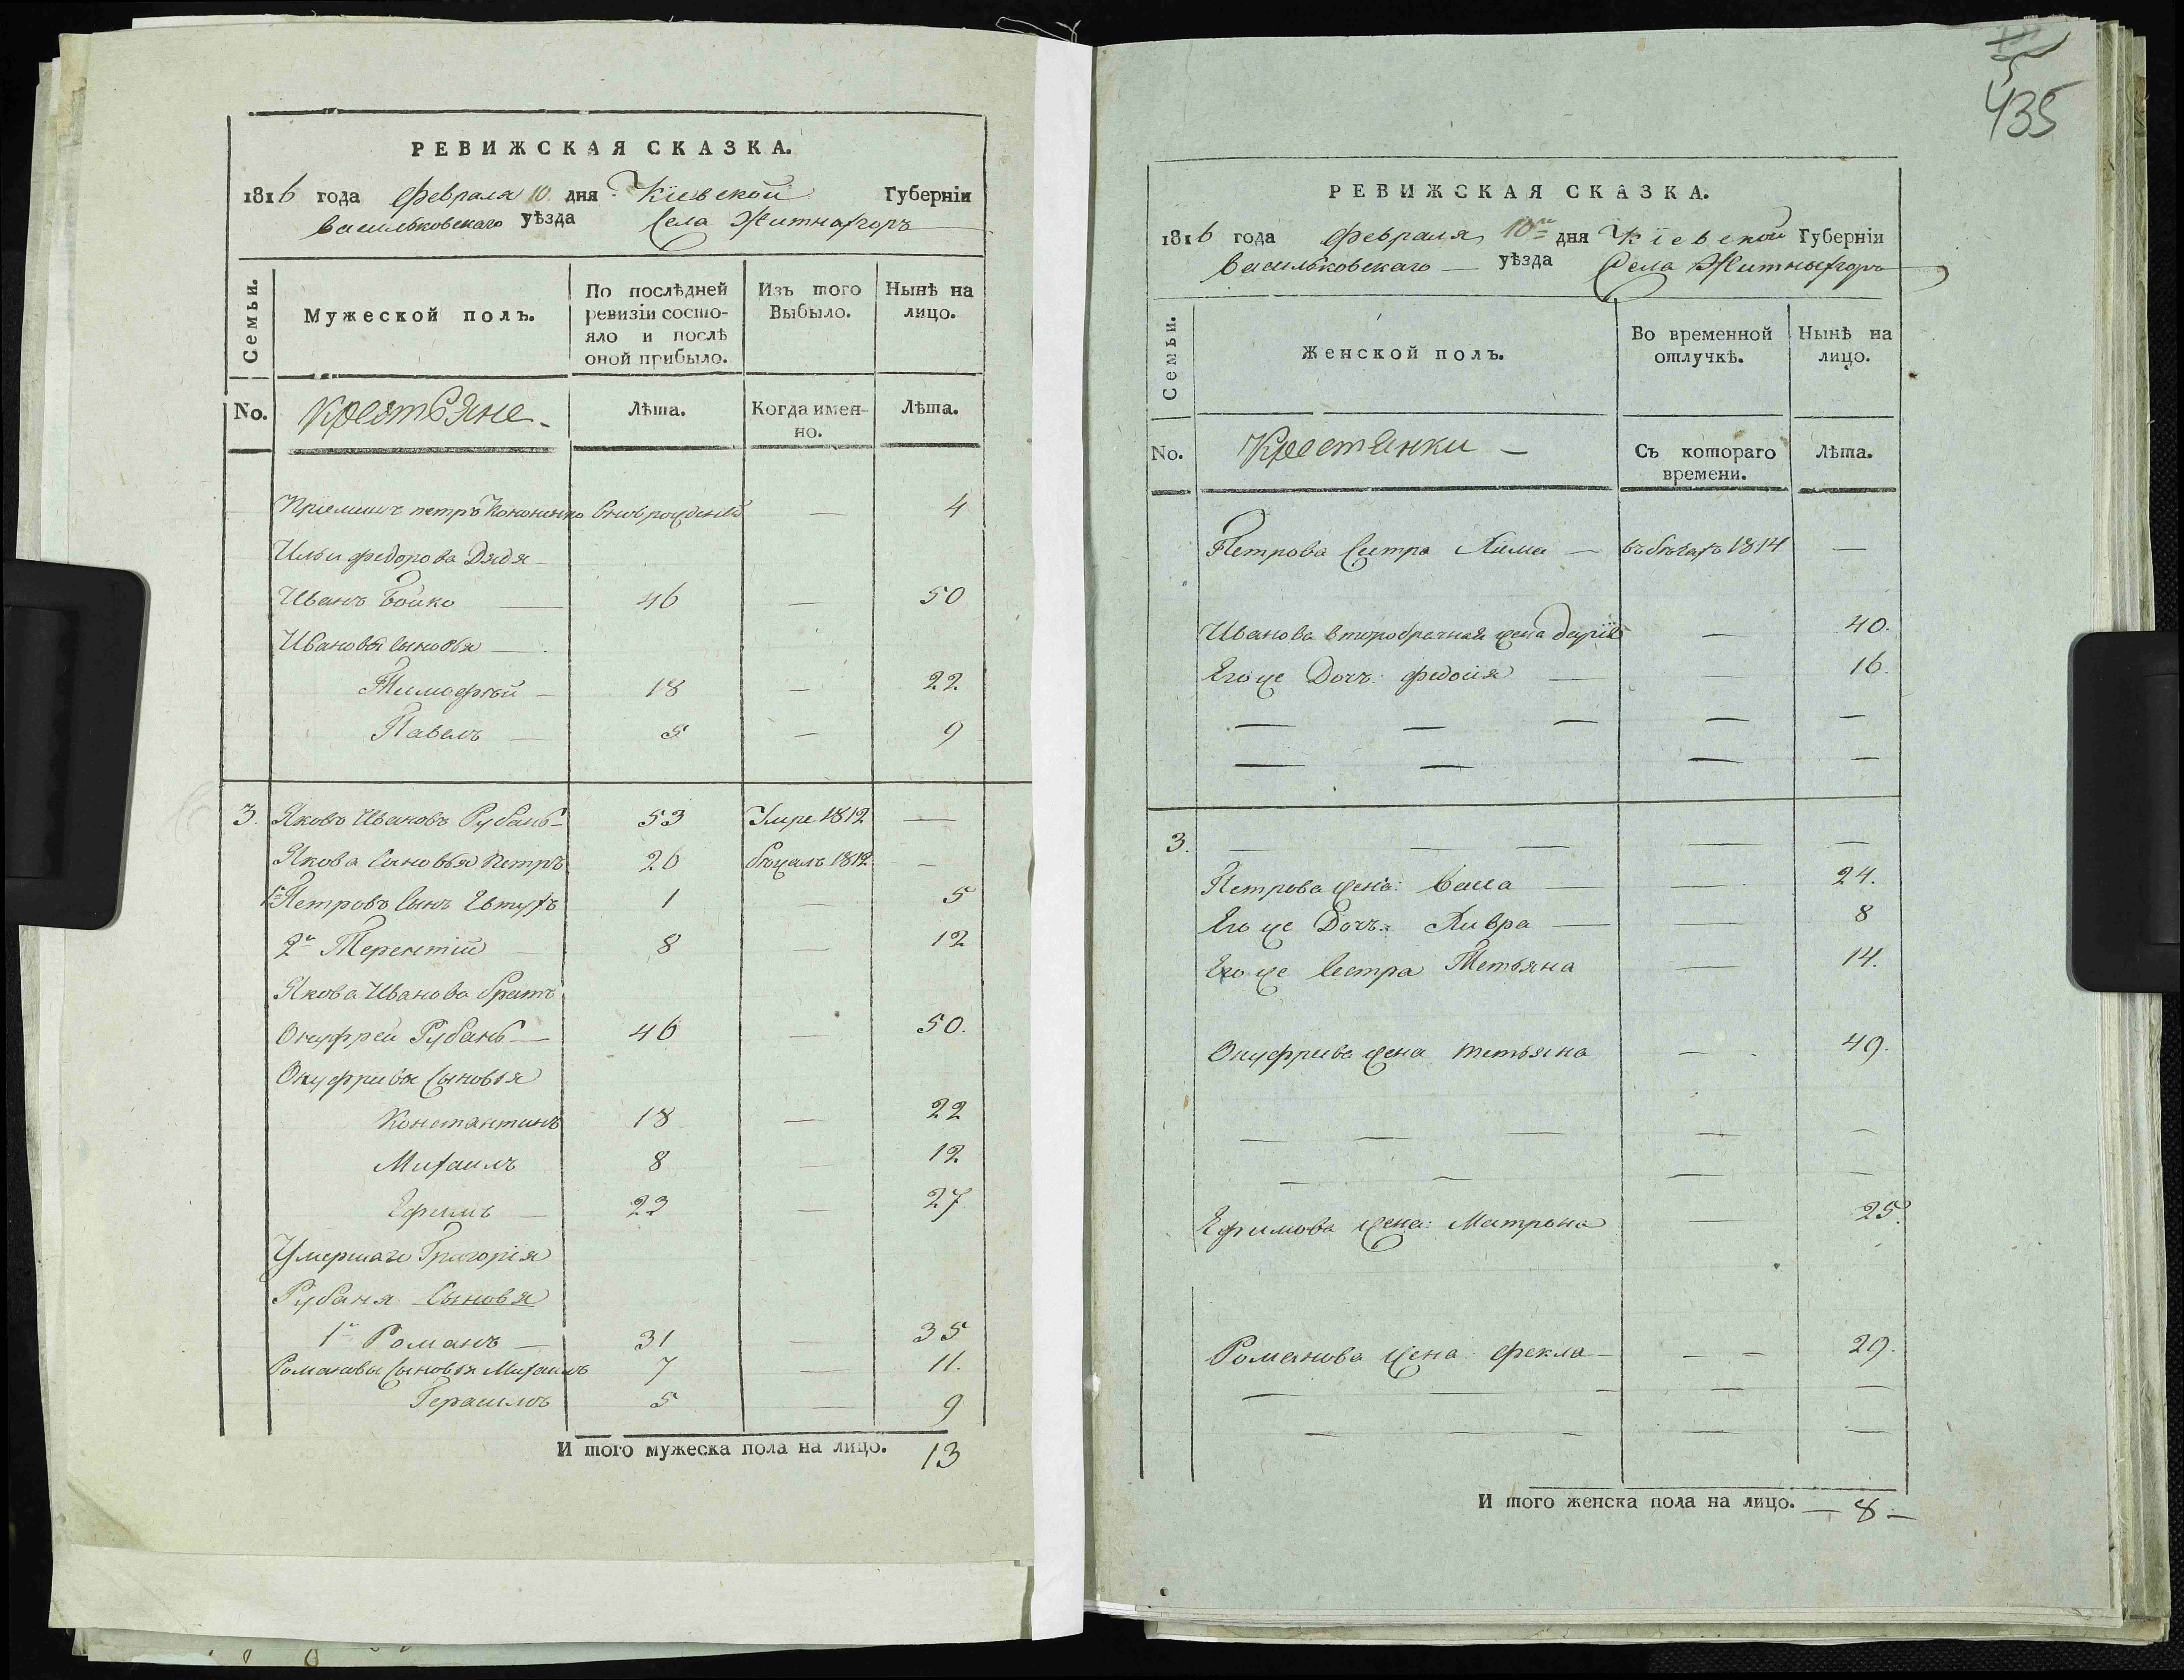 РЕВИЖСКАЯ СКАЗКА.
1816 года февраля 10 дня Кіевской Губерніи
васильковскаго уѣзда Села Житныхгоръ
Семьи.
Мужеской полъ.
По послѣдней ревизіи состо-
яло и послѣ
оной прибыло.
Изъ того
Выбыло.
Нынѣ на
лицо.
No. Крестьяне
Лѣта.
Когда имен-
но.
Лѣта.
Приемышъ петръ Кононенко — 4
Ильи федорова Дядя
Иванъ Бойко — 46 — 50
Ивановы сыновья —
Тимофѣй — 18 — 22
Павелъ — 5 — 9
3. Яковъ Ивановъ Рубанъ 53 Умре 1812 —
Якова Сыновья Петръ 26 бѣжалъ 1812 —
1й Петровъ Сынъ Евтухъ 1 — 5
2й Терентій 8 — 12
Якова Иванова братъ
Онуфрей Рубань — 46 — 50.
Онуфриевы Сыновья
Константинъ 18 — 22
Михаилъ 8 — 12
Ефимъ — 23 — 27
Умершаго Григорія
Рубаня Сыновья
1й Романъ — 31 — 35
Романовы Сыновья Михаилъ 7 — 11.
Герасимъ 5 — 9
И того мужеска пола на лицо. 13
435
РЕВИЖСКАЯ СКАЗКА.
1816 года февраля 10го дня Кіевской Губерніи
васильковскаго — уѣзда Села Житныхгоръ
Семьи.
Женской полъ.
Во временной
отлучкѣ.
Нынѣ на
лицо.
No. Крестянки —
Съ котораго
времени.
Лѣта.
Петрова Систра — въ бѣгахъ 1814 —
Иванова второбрачная жена Дарія — 40.
Его же Дочъ: федосія — — 16.
— — — — —
— — — —
3. — — — — —
Петрова жена: васса — — 24.
Его же Дочъ: Хивра — — 8
Его же Сестра Тетьяна — 14.
Онуфриева жена тетьяна — 49.
— — — — —
— — — —
Ефимова жена: Матрона — 25.
Романова жена: фекла — — — 29.
— — — — —
— — — — —
И того женска пола на лицо. — 8 —